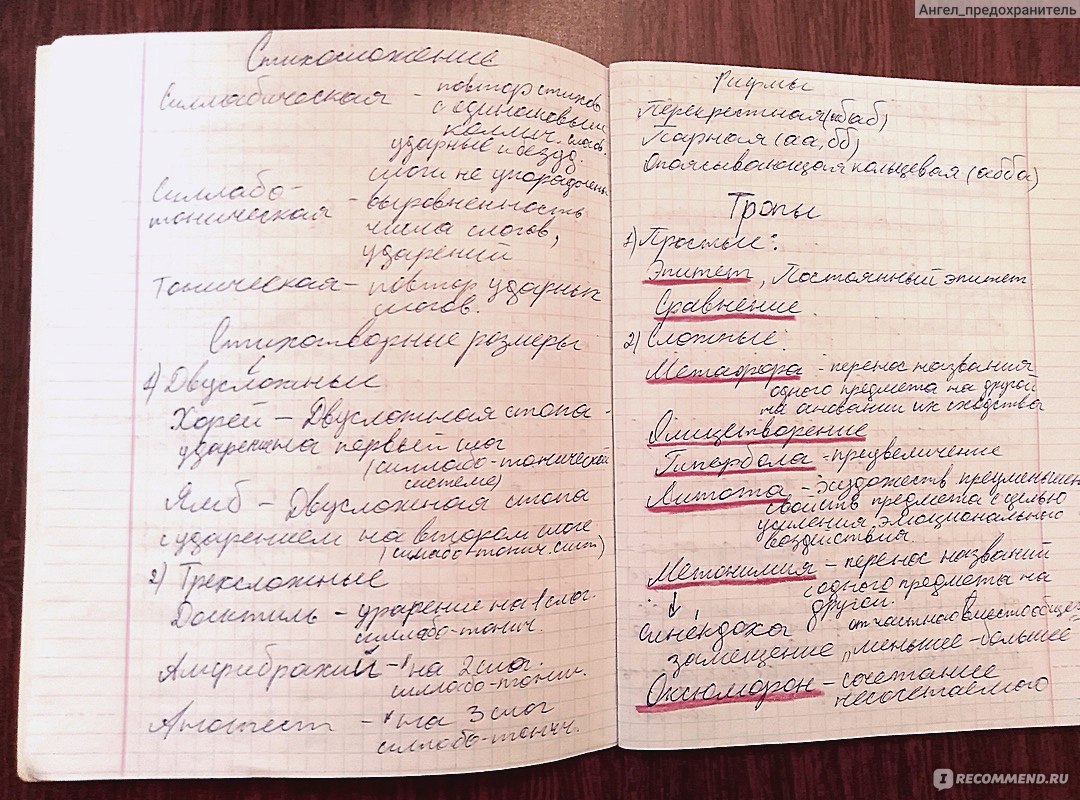 Ангел_предохранитель
Стихосложение
Силлабическая – повтор стихов
с одинаковым
колич. слогов.
ударные и безуд.
слоги не упорядочены
Силлабо-
тоническая – выровненность
числа слогов,
ударений
Тоническая – повтор ударных
слогов.
Стихотворные размеры
1) Двусложные
Хорей – Двусложная стопа -
ударение на первый слог
(силлабо-тонической
системе)
Ямб – Двусложная стопа
с ударением на втором слоге
(силлабо-тонич. сист)
2) Трехсложные
Дактиль – ударение на 1 слог.
силлабо-тонич.
Амфибрахий – на 2 слог.
силлабо-тонич.
Анапест – на 3 слог
силлабо-тонич.
Рифмы
Перекрестная (абаб)
Парная (аа, бб)
Опоясывающая кольцевая (абба)
Тропы
1) Простые:
Эпитет, Постоянный эпитет
Сравнение
2) Сложные:
Метафора - перенос названия
одного предмета на другой
на основании их сходства
Олицетворение
Гипербола - преувеличение
Литота - художеств преуменьшен
свойств предмета с целью
усиления эмоционального
воздействия.
Метонимия – перенос названий
с одного предмета на
другой.
↓
синéкдоха от частного вместо общег
замещение „меньшее - большее
Оксюморон – сочетание
несочетаемого
IRECOMMEND.RU